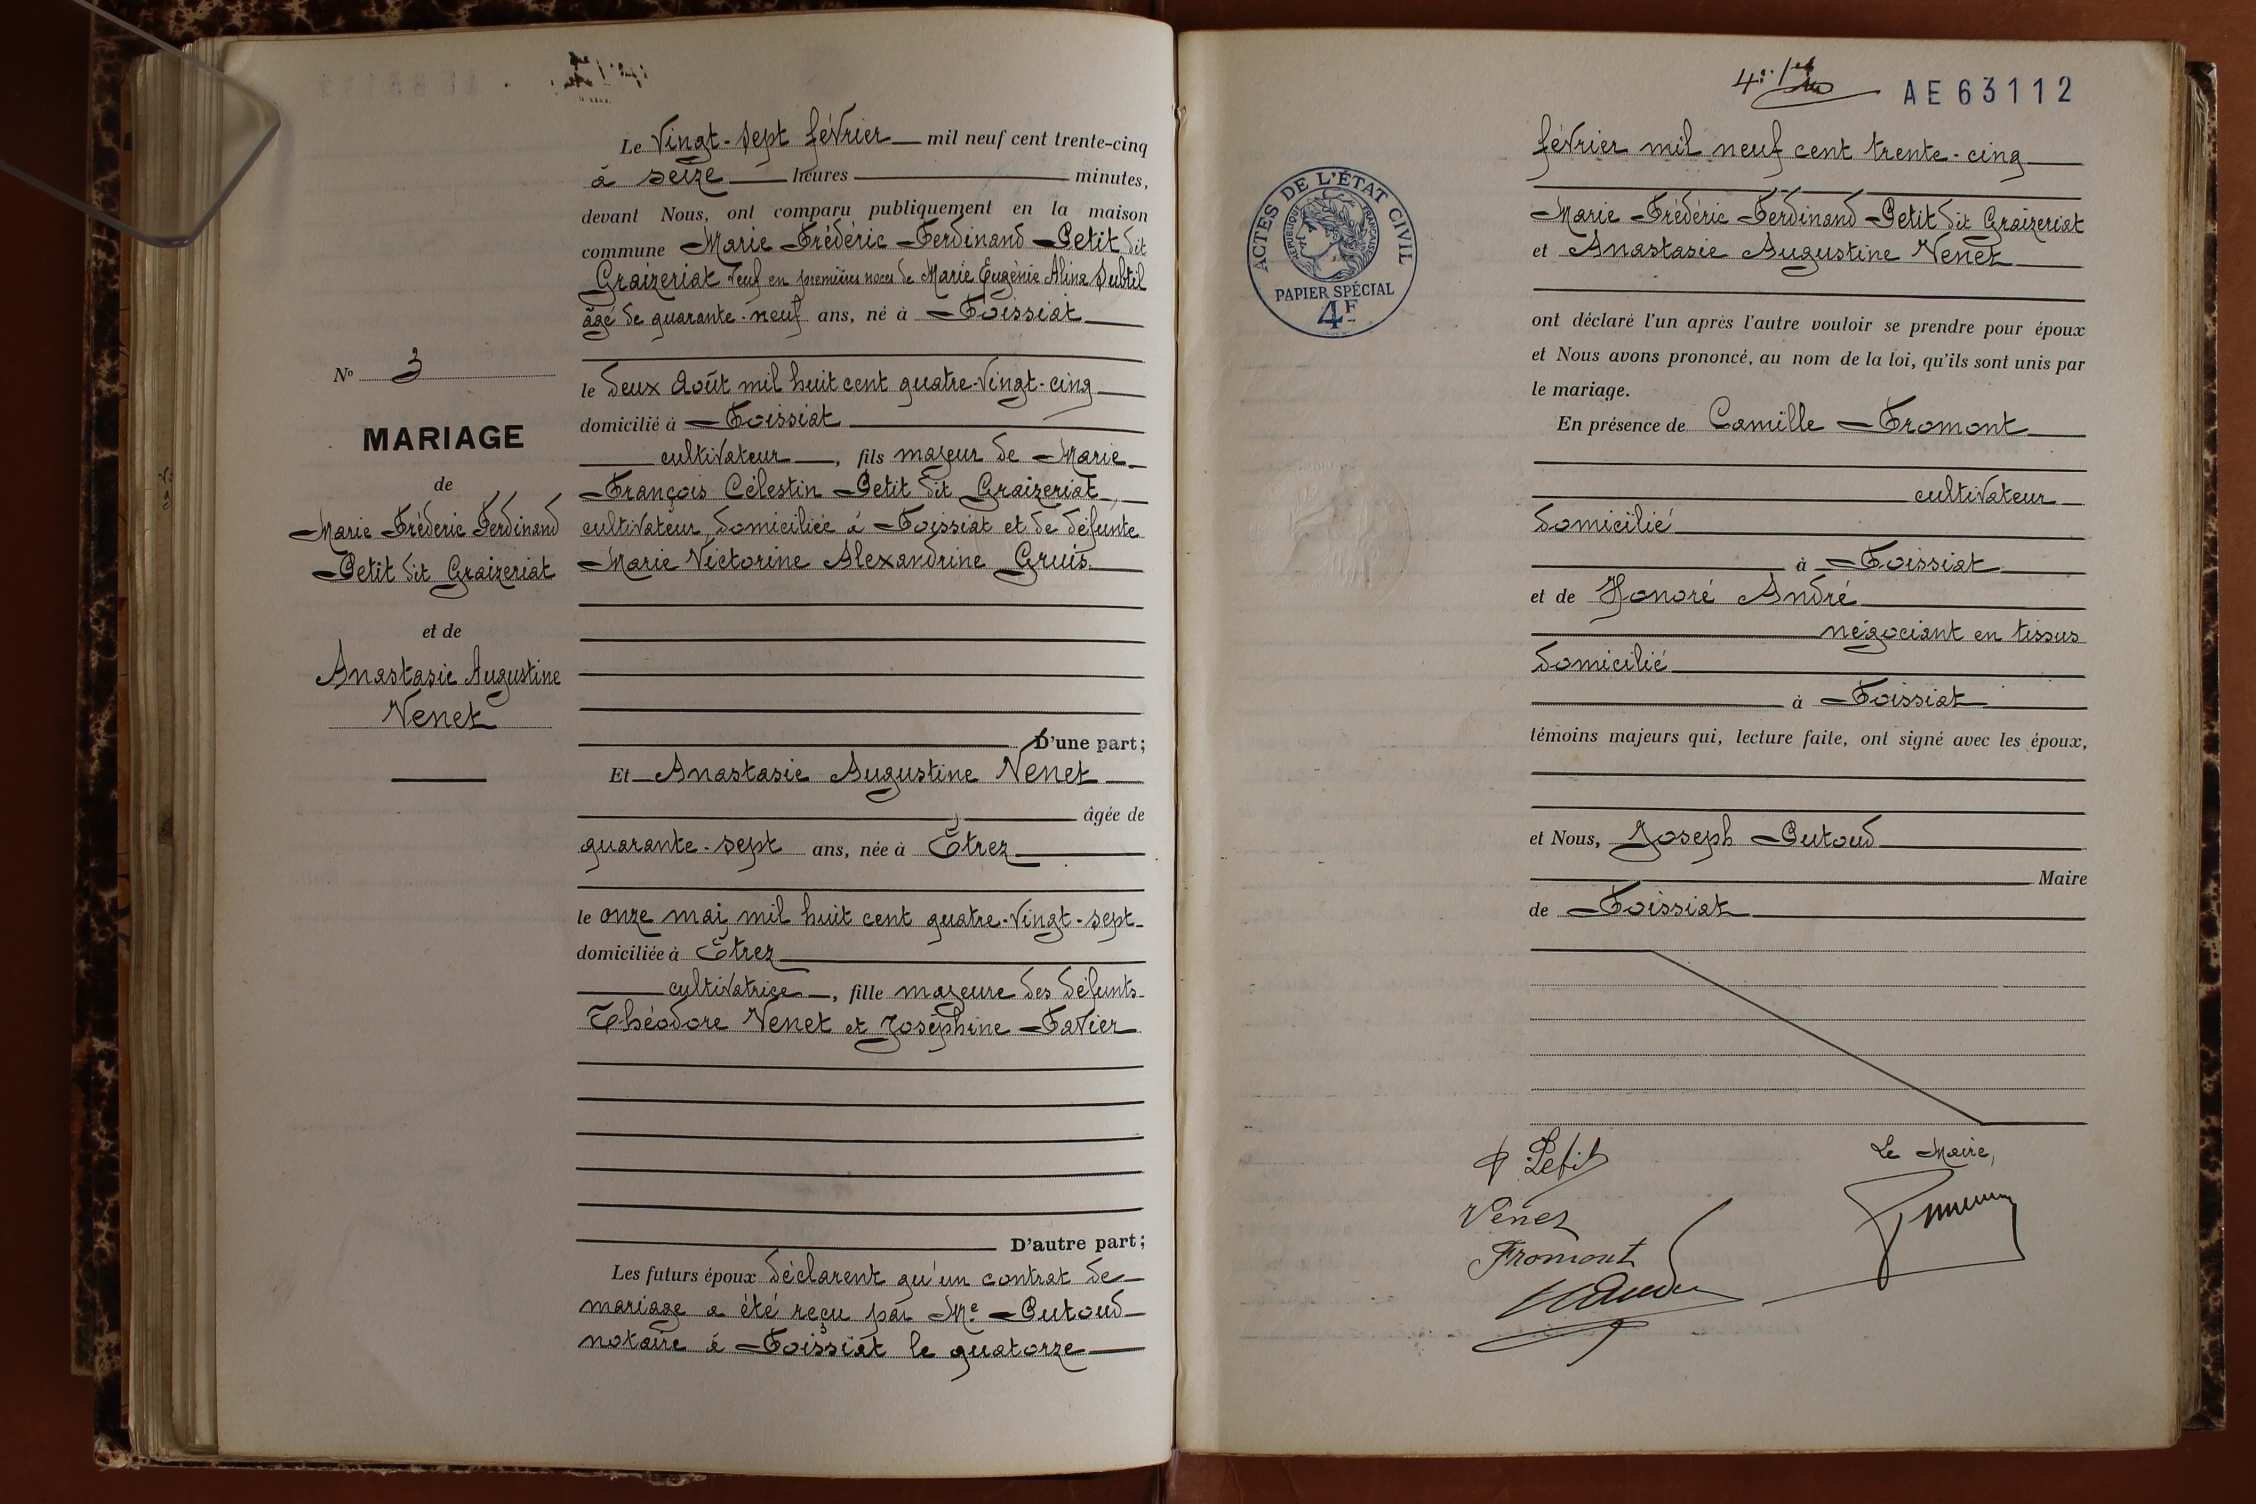 Le vingt-sept février mil neuf cent trente-cinq
à seize heures minutes,
devant Nous, ont comparu publiquement en la maison
commune Marie Frédéric Ferdinand Petit dit
Graizeriat veuf en premières noces de Marie Eugénie Alina Subtil
âgé de quarante-neuf ans, né à Foissiat
le deux Août mil huit cent quatre-vingt-cinq
domicilié à Foissiat
cultivateur, fils majeur de Marie
François Célestin Petit dit Graizeriat,
cultivateur, domiciliée à Foissiat et de défunte
Marie Victorine Alexandrine Gruis.
D'une part;
Et Anastasie Augustine Venet
âgée de
quarante-sept ans, née à Étrez
le onze mai mil huit cent quatre-vingt-sept
domiciliée à Étrez
cultivatrice, fille majeure des défunts
Théodore Venet et Joséphine Favier
D'autre part;
Les futurs époux déclarent qu'un contrat de
mariage a été reçu par Me Putoud
notaire à Foissiat le quatorze
No 3
MARIAGE
de
Marie Fréderic Ferdinand
Petit dit Graizeriat
et de
Anastasie Augustine
Venet
AE63112
ACTES DE L'ÉTAT CIVIL
RÉPUBLIQUE FRANÇAISE
PAPIER SPÉCIAL
4F
février mil neuf cent trente-cinq
Marie Frédéric Ferdinand Petit dit Graizeriat
et Anastasie Augustine Venet
ont déclaré l'un après l'autre vouloir se prendre pour époux
et Nous avons prononcé, au nom de la loi, qu'ils sont unis par
le mariage.
En présence de Camille Fromont
cultivateur
domicilié
à Foissiat
et de Honoré André
négociant en tissus
domicilié
à Foissiat
témoins majeurs qui, lecture faite, ont signé avec les époux,
et Nous, Joseph Putoud
Maire
de Foissiat
Petit
Le Maire,
Venet
Fromont